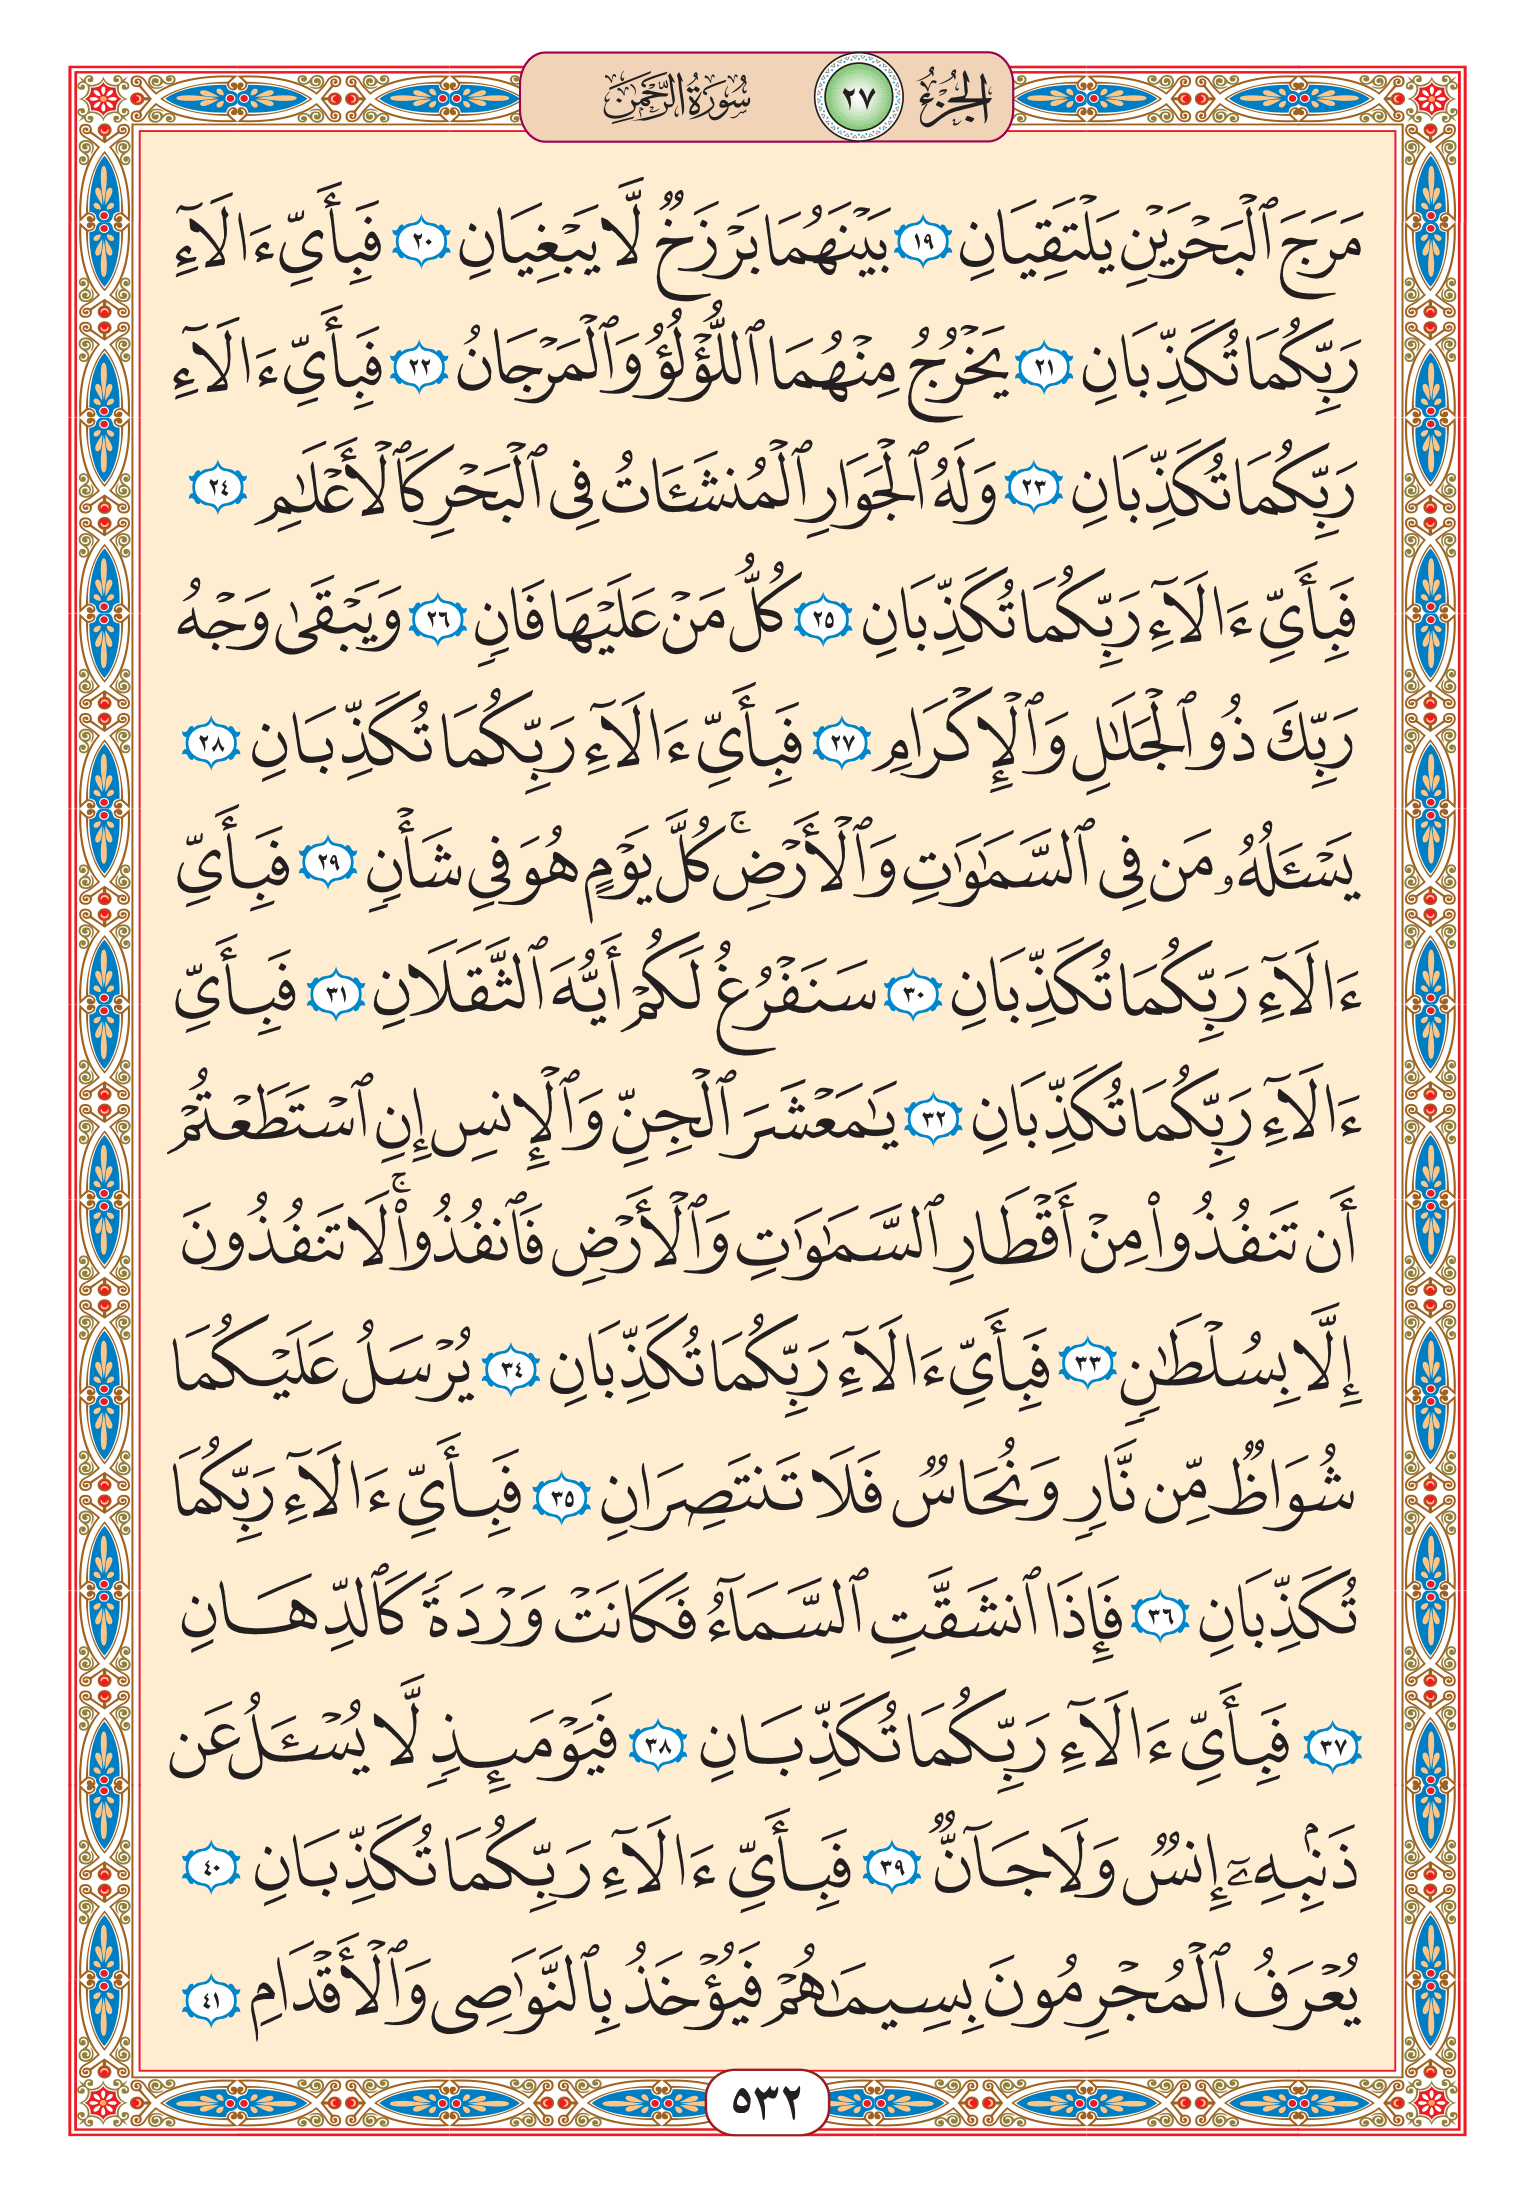 الجزء ٢٧ سورة الرحمن
مَرَجَ ٱلْبَحْرَيْنِ يَلْتَقِيَانِ ١٩ بَيْنَهُمَا بَرْزَخٌ لَّا يَبْغِيَانِ ٢٠ فَبِأَيِّ ءَالَآءِ
رَبِّكُمَا تُكَذِّبَانِ ٢١ يَخْرُجُ مِنْهُمَا ٱللُّؤْلُؤُ وَٱلْمَرْجَانُ ٢٢ فَبِأَيِّ ءَالَآءِ
رَبِّكُمَا تُكَذِّبَانِ ٢٣ وَلَهُ ٱلْجَوَارِ ٱلْمُنشَـَٔاتُ فِى ٱلْبَحْرِ كَٱلْأَعْلَٰمِ ٢٤
فَبِأَيِّ ءَالَآءِ رَبِّكُمَا تُكَذِّبَانِ ٢٥ كُلُّ مَنْ عَلَيْهَا فَانٍ ٢٦ وَيَبْقَىٰ وَجْهُ
رَبِّكَ ذُو ٱلْجَلَٰلِ وَٱلْإِكْرَامِ ٢٧ فَبِأَيِّ ءَالَآءِ رَبِّكُمَا تُكَذِّبَانِ ٢٨
يَسْـَٔلُهُۥ مَن فِى ٱلسَّمَٰوَٰتِ وَٱلْأَرْضِ ۚ كُلَّ يَوْمٍ هُوَ فِى شَأْنٍ ٢٩ فَبِأَيِّ
ءَالَآءِ رَبِّكُمَا تُكَذِّبَانِ ٣٠ سَنَفْرُغُ لَكُمْ أَيُّهَ ٱلثَّقَلَانِ ٣١ فَبِأَيِّ
ءَالَآءِ رَبِّكُمَا تُكَذِّبَانِ ٣٢ يَٰمَعْشَرَ ٱلْجِنِّ وَٱلْإِنسِ إِنِ ٱسْتَطَعْتُمْ
أَن تَنفُذُوا۟ مِنْ أَقْطَارِ ٱلسَّمَٰوَٰتِ وَٱلْأَرْضِ فَٱنفُذُوا۟ ۚ لَا تَنفُذُونَ
إِلَّا بِسُلْطَٰنٍ ٣٣ فَبِأَيِّ ءَالَآءِ رَبِّكُمَا تُكَذِّبَانِ ٣٤ يُرْسَلُ عَلَيْكُمَا
شُوَاظٌ مِّن نَّارٍ وَنُحَاسٌ فَلَا تَنتَصِرَانِ ٣٥ فَبِأَيِّ ءَالَآءِ رَبِّكُمَا
تُكَذِّبَانِ ٣٦ فَإِذَا ٱنشَقَّتِ ٱلسَّمَآءُ فَكَانَتْ وَرْدَةً كَٱلدِّهَانِ
٣٧ فَبِأَيِّ ءَالَآءِ رَبِّكُمَا تُكَذِّبَانِ ٣٨ فَيَوْمَئِذٍ لَّا يُسْـَٔلُ عَن
ذَنۢبِهِۦٓ إِنسٌ وَلَا جَآنٌّ ٣٩ فَبِأَيِّ ءَالَآءِ رَبِّكُمَا تُكَذِّبَانِ ٤٠
يُعْرَفُ ٱلْمُجْرِمُونَ بِسِيمَٰهُمْ فَيُؤْخَذُ بِٱلنَّوَٰصِى وَٱلْأَقْدَامِ ٤١
٥٣٢